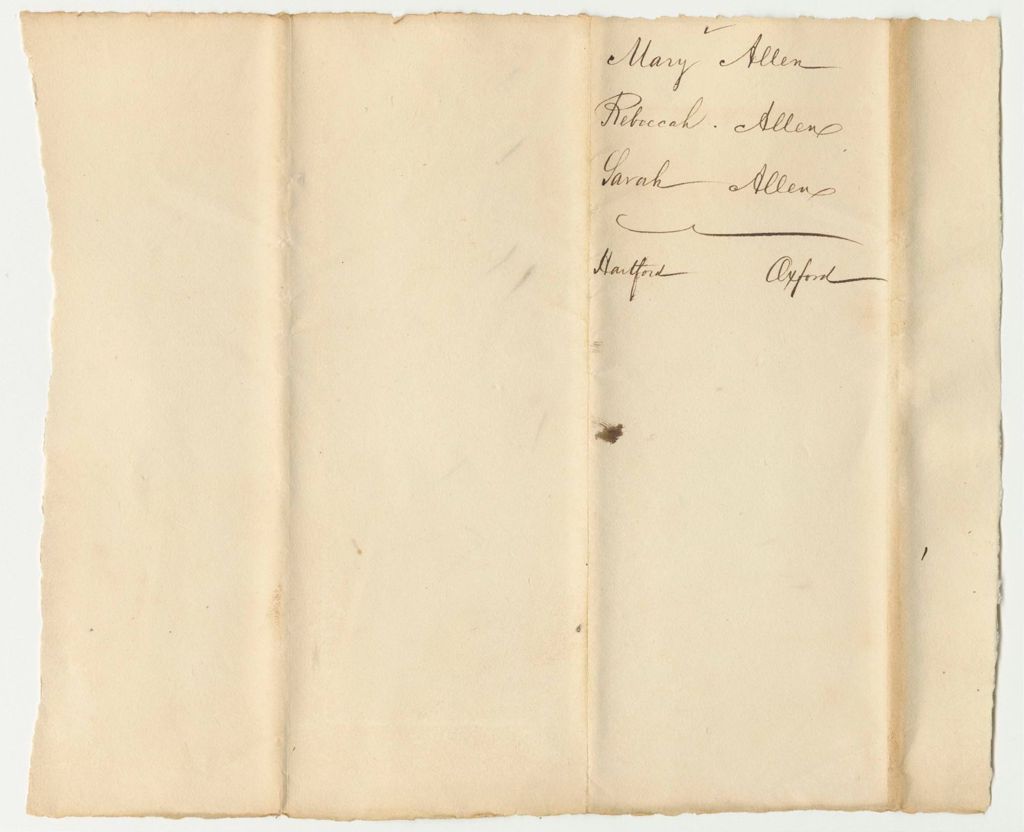 Mary Allen
Rebeccah. Allen
Sarah Allen
Hartford Oxford